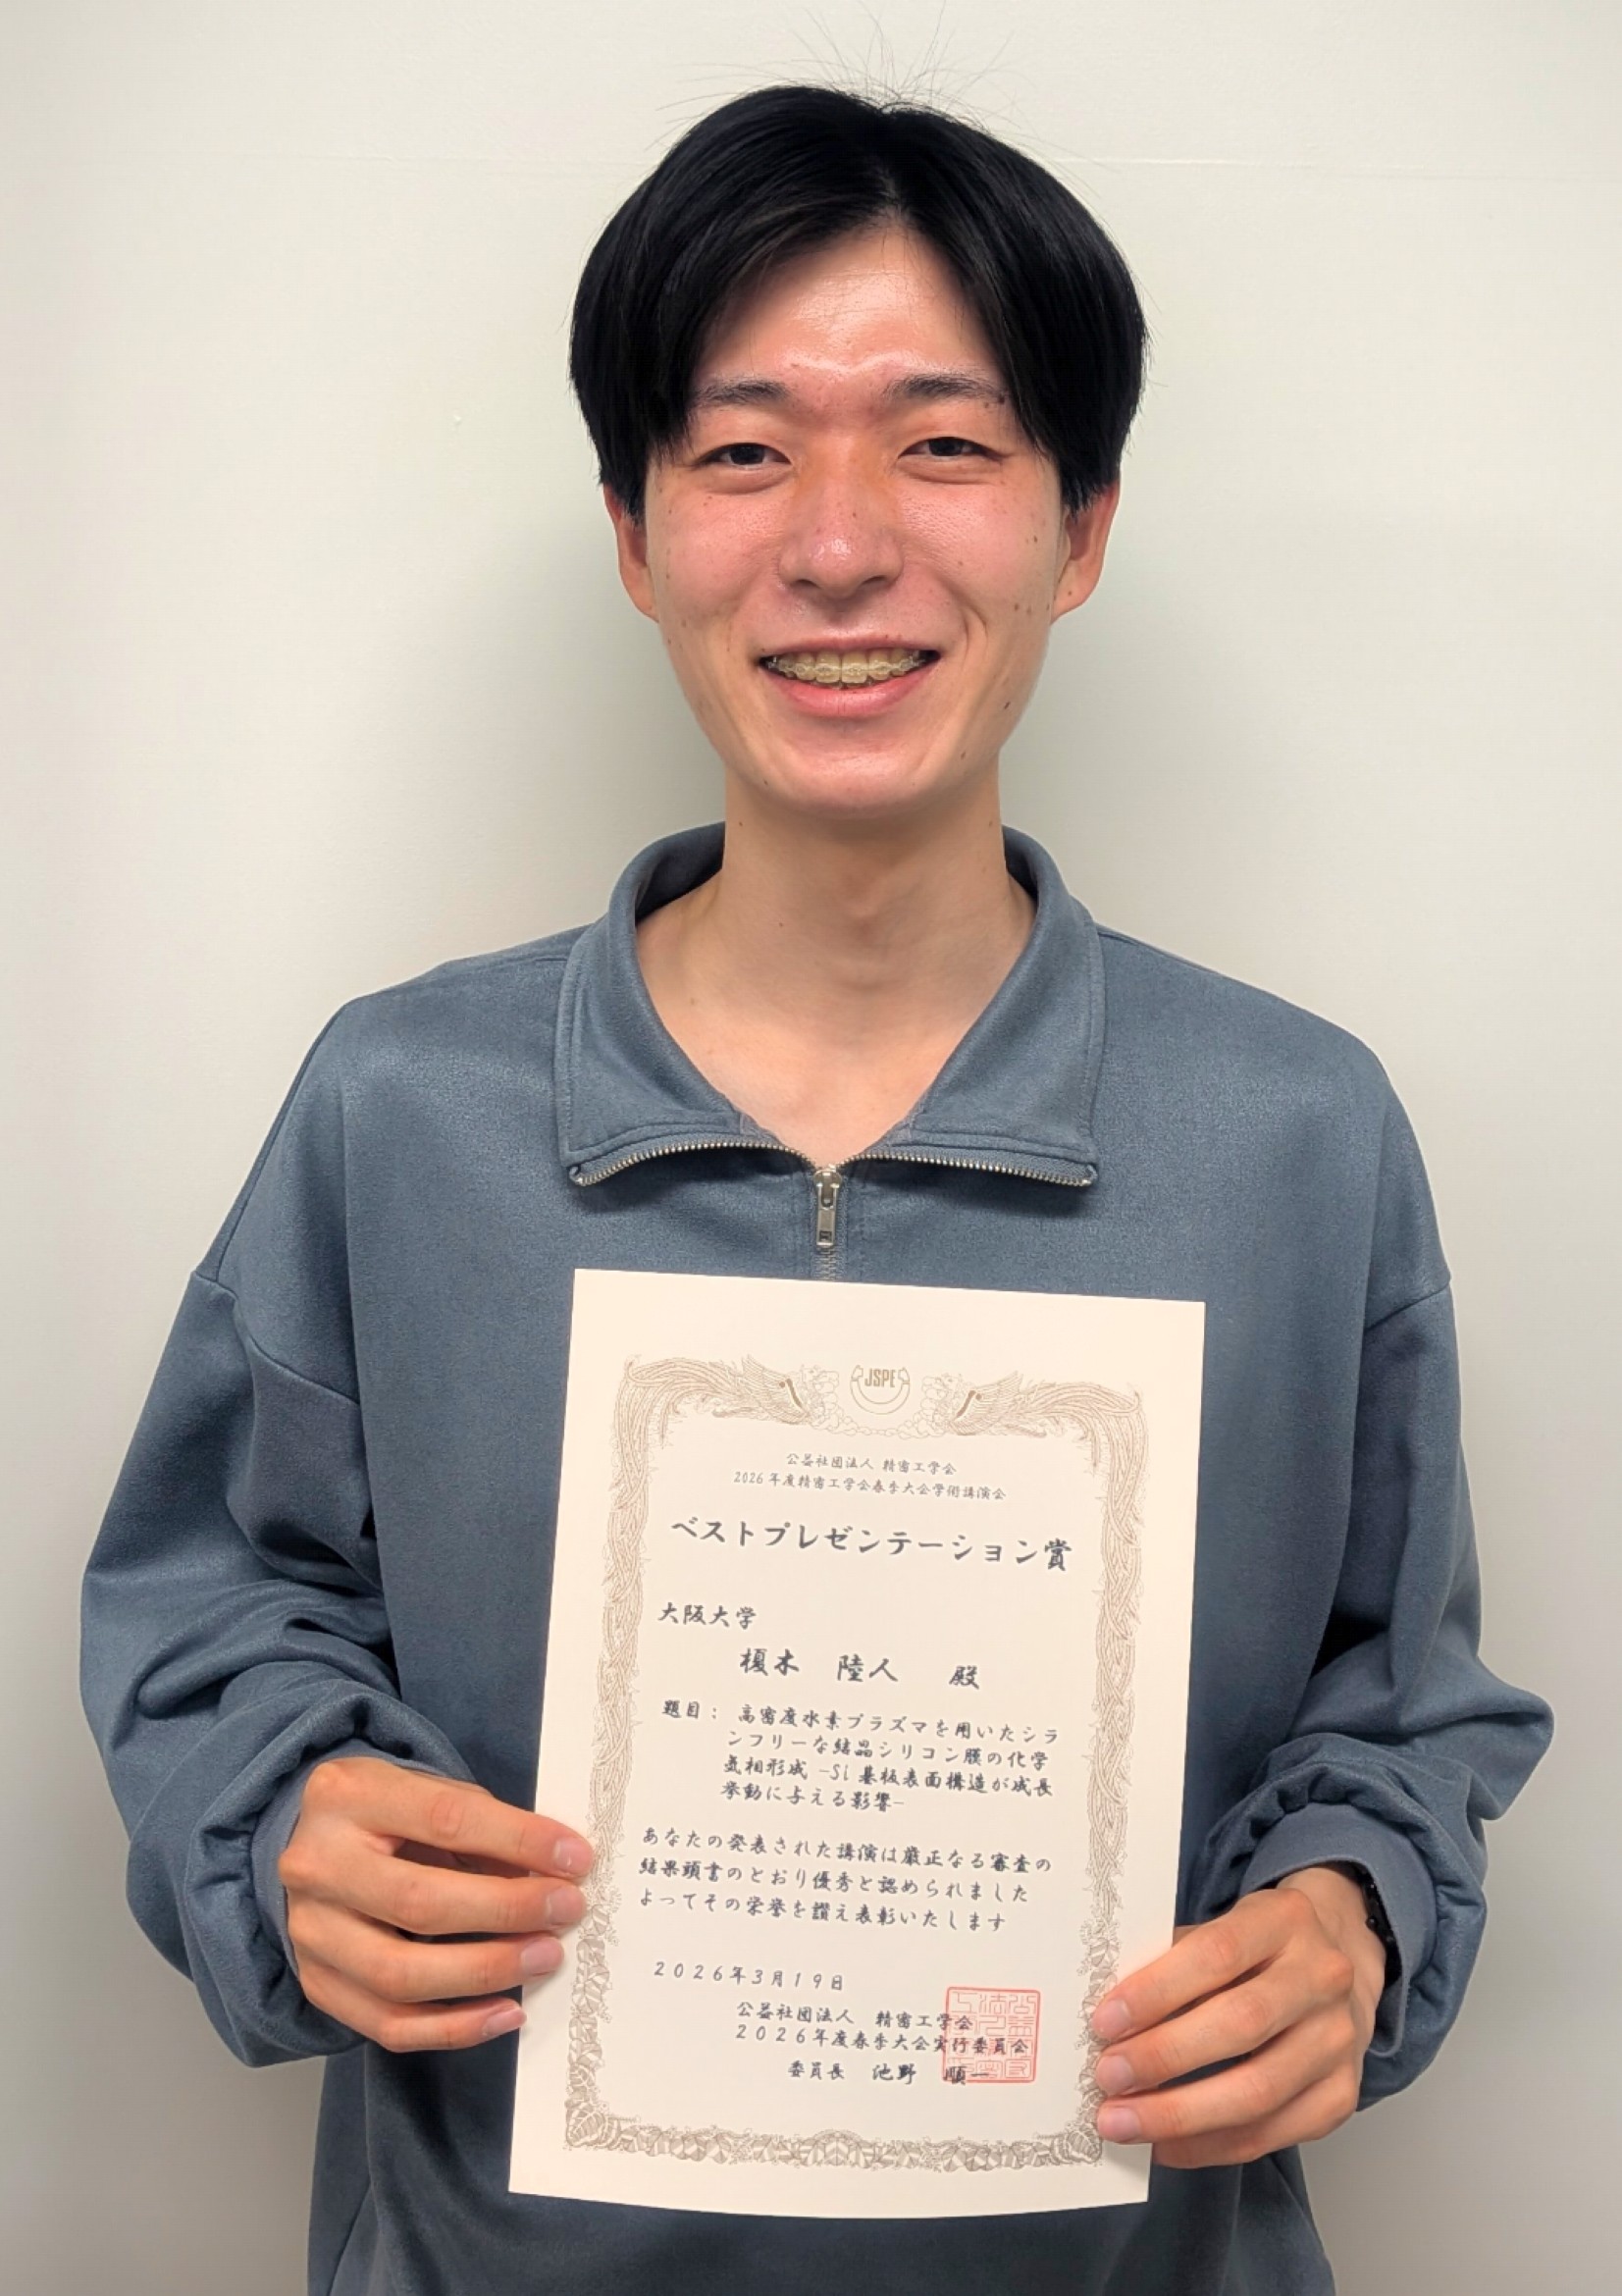 JSPE
公益社団法人 精密工学会
2026年度精密工学会春季大会学術講演会
ベストプレゼンテーション賞
大阪大学
榎木 陸人 殿
題目： 高密度水素プラズマを用いたシラ
ンフリーな結晶シリコン膜の化学
気相形成 -Si 基板表面構造が成長
挙動に与える影響-
あなたの発表された講演は厳正なる審査の
結果頭書のとおり優秀と認められました
よってその栄誉を讃え表彰いたします
2026年3月19日
公益社団法人 精密工学会
2026年度春季大会実行委員会
委員長 池野 順一